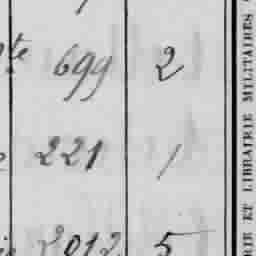 te 699 2
221 1
2012 5
RIE ET LIBRAIRIE MILITAIRES